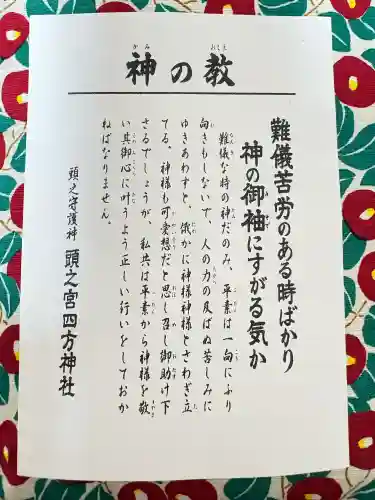 神の教
難儀苦労のある時ばかり
神の御袖にすがる気か
難儀な時の神だのみ、平素は一向にふり
向きもしないで、人の力の及ばぬ苦しみに
ゆきあわすと、俄かに神様神様とさわぎ立
てる。神様も可愛想だと思し召し御助け下
さるでしょうが、私共は平素から神様を敬
い其御心に叶うよう正しい行いをしておか
ねばなりません。
頭之守護神 頭之宮四方神社